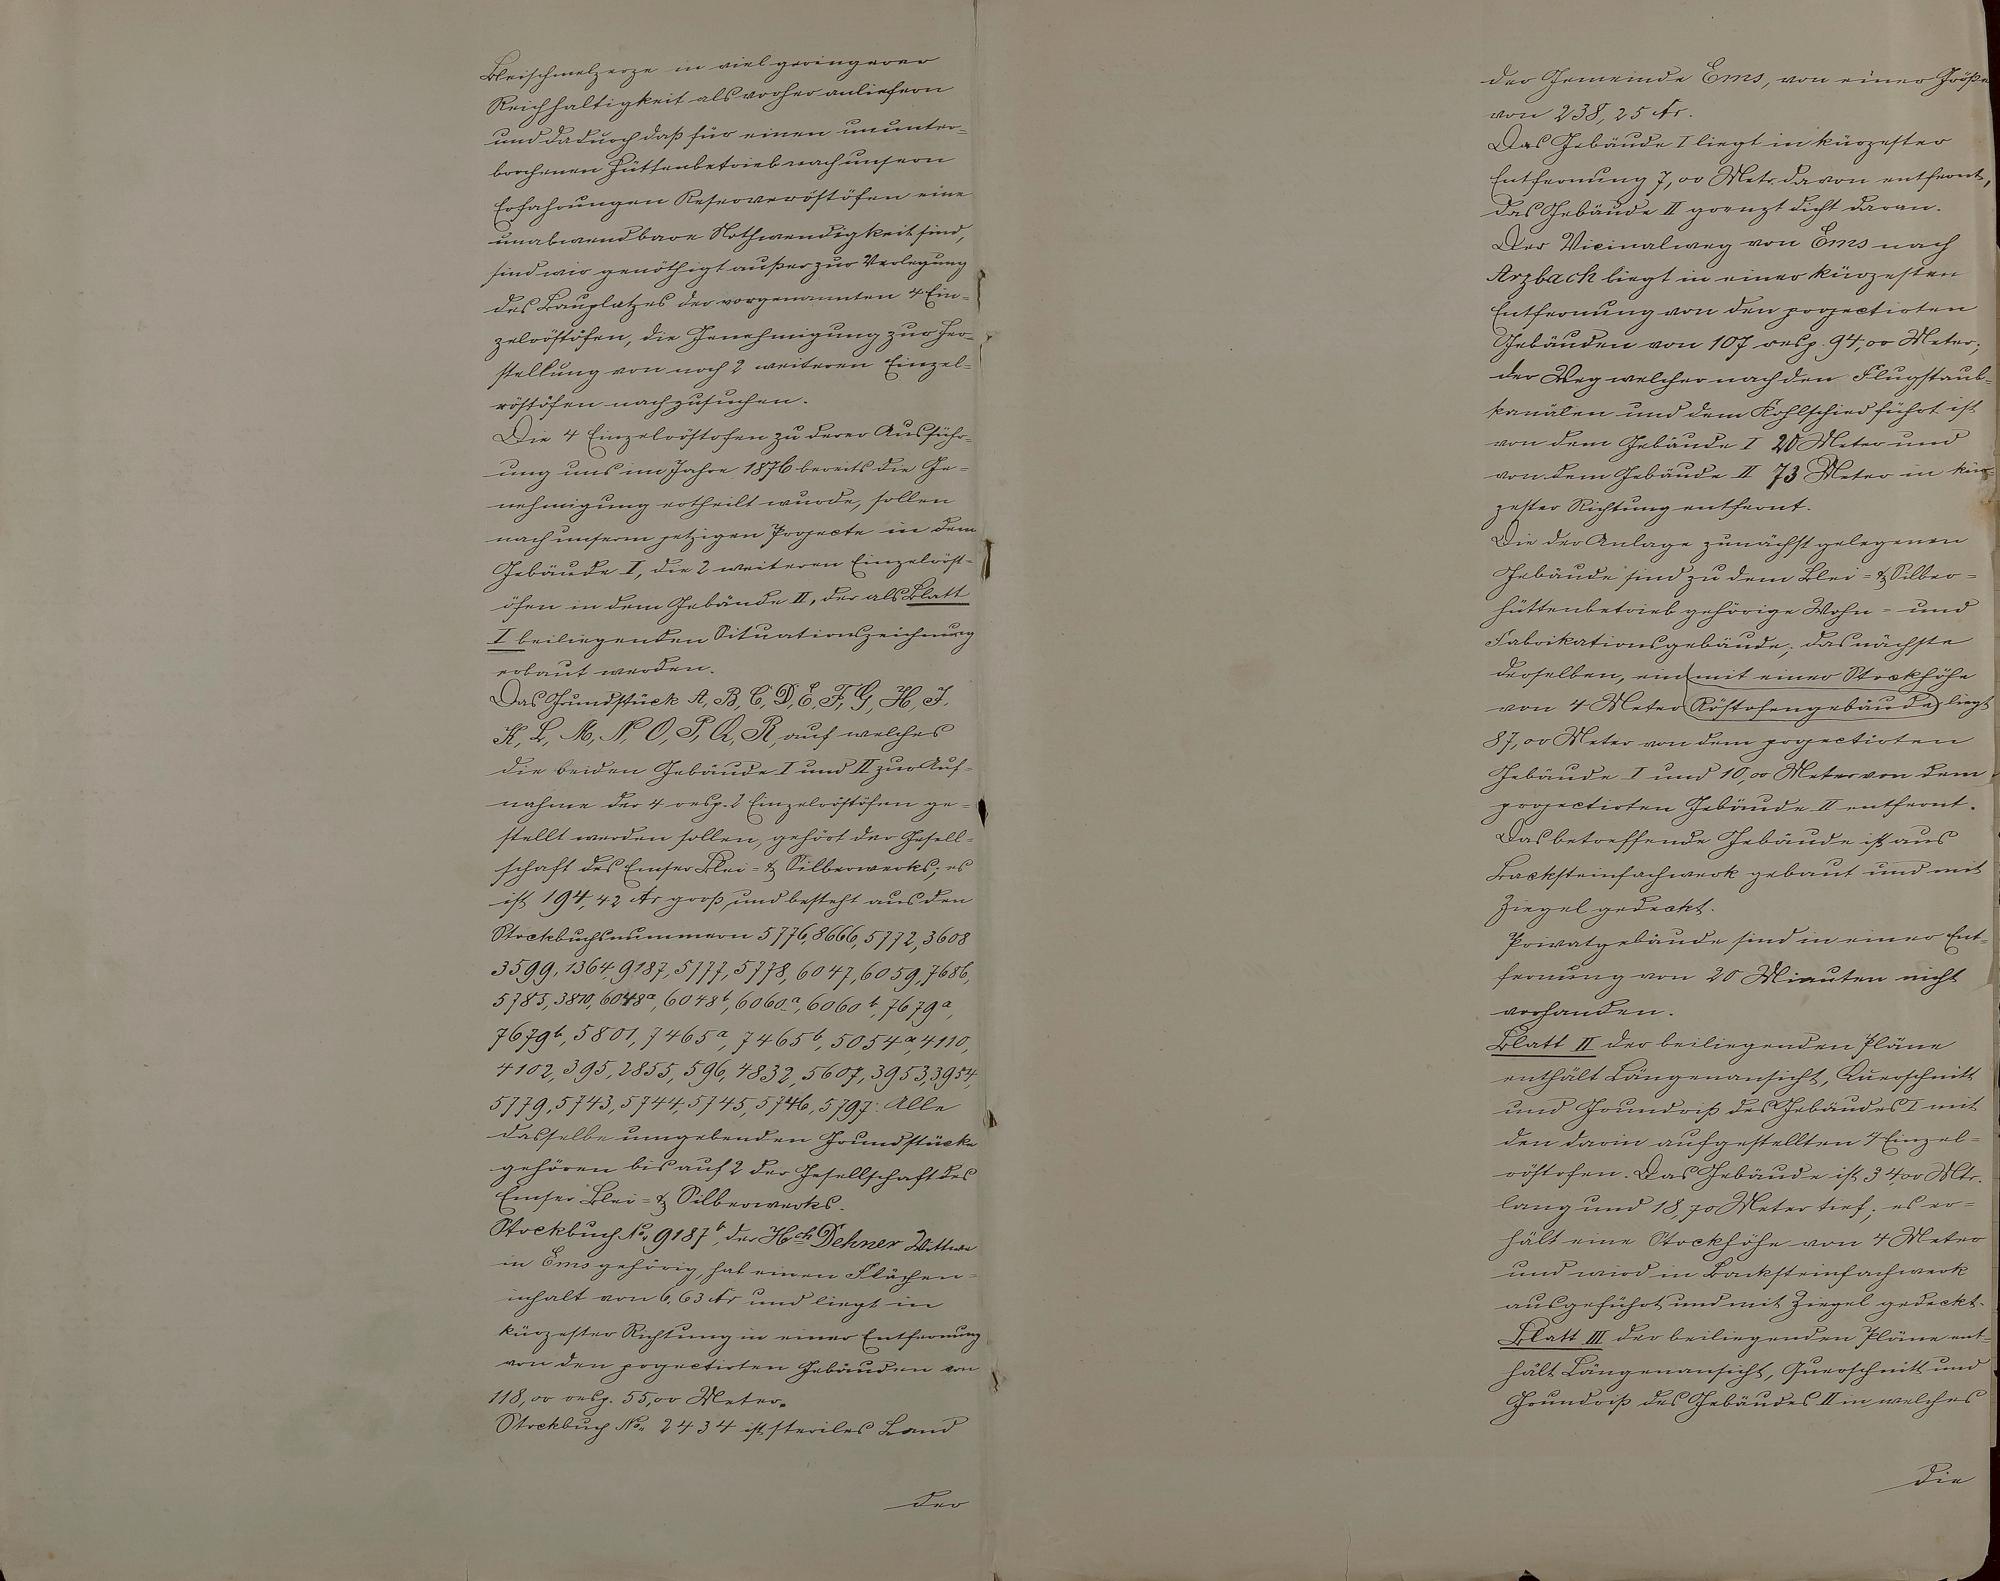 Bleischmelzerze in viel geringerer
Reichhaltigkeit als vorher anliefern
und dadurch daß für einen ununter-
brochenen Hüttenbetrieb nach unsern
Erfahrungen Reserveröstöfen eine
unabwendbare Nothwendigkeit sind,
sind wir genöthigt außer zur Verlegung
des Bauplatzes der vorgenannten 4 Ein-
zelröstöfen, die Genehmigung zur Her-
stellung von noch 2 weiteren Einzel-
röstöfen nachzusuchen.
Die 4 Einzelröstofen zu derer Ausführ-
ung uns im Jahre 1876 bereits die Ge-
nehmigung ertheilt wurde, sollen
nach unserm jetzigen Projecte in dem
Gebäude I, die 2 weiteren Einzelröst-
öfen in dem Gebäude II, der als Blatt
I beiliegenden Situationszeichnung
erbaut werden.
Das Grundstück A, B, C, D, E, F, G, H, J,
K, L, M, N, O, P, Q, R, auf welches
die beiden Gebäude I und II zur Auf-
nahme der 4 resp. 2 Einzelröstöfen ge-
stellt werden sollen, gehört der Gesell-
schaft des Emser Blei- & Silberwerks; es
ist 194,42 Ar groß, und besteht aus den
Stockbuchsnummern 5776, 8666, 5772, 3608
3599, 1364, 9187, 5777, 5778, 6047, 6059, 7686,
5785, 3870, 6048a, 6048b, 6060a, 6060b, 7679a,
7679b, 5801, 7465a, 7465b, 5054a, 4110,
4102, 395, 2855, 596, 4832, 5607, 3953, 3954,
5779, 5743, 5744, 5745, 5746, 5797. Alle
dasselbe umgebenden Grundstücke
gehören bis auf 2 der Gesellschaft des
Emser Blei- & Silberwerks.
Stockbuch No. 9187b, der Hch Dehner Wittwe
in Ems gehörig, hat einen Flächen-
inhalt von 6,63 Ar und liegt in
kürzester Richtung in einer Entfernung
von den projectirten Gebäuden von
118,00 resp. 55,00 Meter.
Stockbuch No. 2434 ist steriles Land
der
der Gemeinde Ems, von einer Größe
von 238,25 Ar.
Das Gebäude I liegt in kürzester
Entfernung 7,00 Metr. davon entfernt,
das Gebäude II grenzt dicht daran.
Der Vicinalweg von Ems nach
Arzbach liegt in einer kürzesten
Entfernung von den projectirten
Gebäuden von 107 resp. 94,00 Meter;
der Weg welcher nach den Flugstaub-
kanälen und dem Kohlschied führt ist
von dem Gebäude I 20 Meter und
von dem Gebäude II 73 Meter in kür-
zester Richtung entfernt.
Die der Anlage zunächst gelegenen
Gebäude sind zu dem Blei- & Silber-
hüttenbetrieb gehörige Wohn- und
Fabrikationsgebäude; das nächste
derselben, ein mit einer Stockhöhe
von 4 Meter Röstofengebäude liegt
87,00 Meter von dem projectirten
Gebäude I und 10,00 Meter von dem
projectirten Gebäude II entfernt.
Das betreffende Gebäude ist aus
Backsteinfachwerk gebaut und mit
Ziegel gedeckt.
Privatgebäude sind in einer Ent-
fernung von 20 Minuten nicht
vorhanden.
Blatt II der beiliegenden Pläne
enthält Längenansicht, Querschnitt
und Grundriß des Gebäudes I mit
den darin aufgestellten 4 Einzel-
röstofen. Das Gebäude ist 34,00 Mtr.
lang und 18,70 Meter tief; es er-
hält eine Stockhöhe von 4 Meter
und wird in Backsteinfachwerk
ausgeführt und mit Ziegel gedeckt.
Blatt III der beiliegenden Pläne ent-
hält Längenansicht, Querschnitt und
Grundriß des Gebäudes II in welches
die